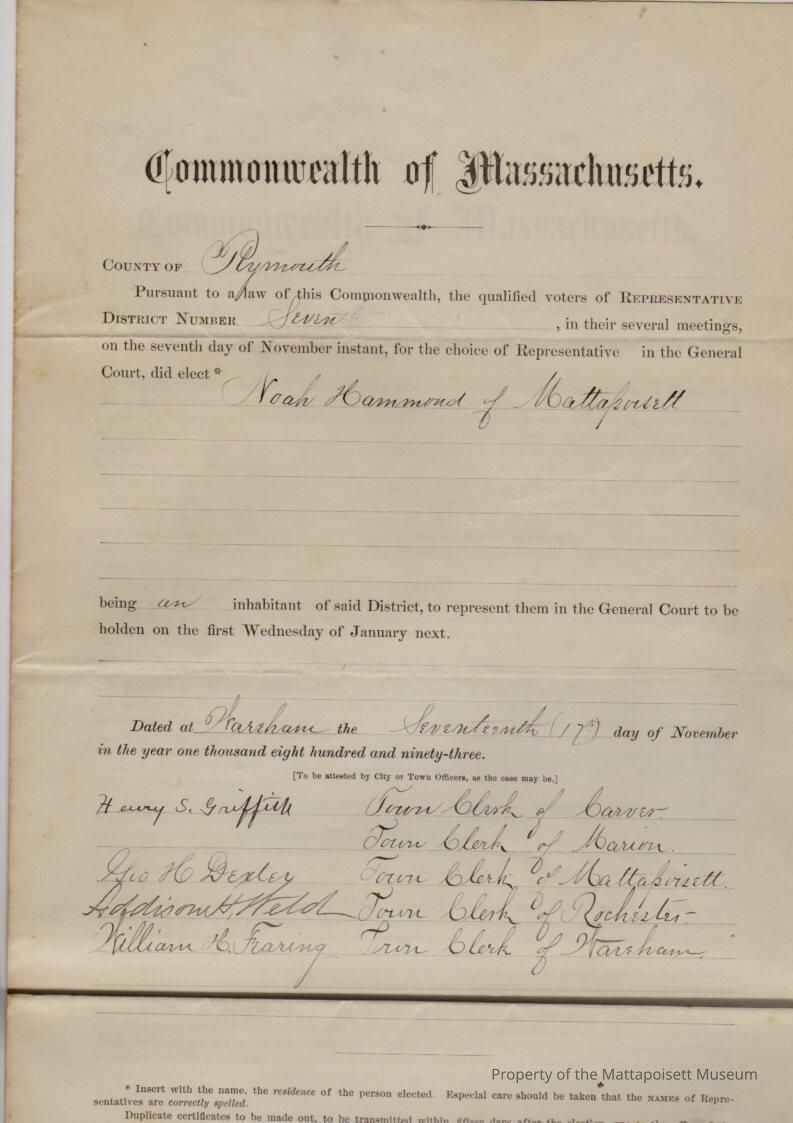 Commonwealth of Massachusetts.
COUNTY OF Plymouth
Pursuant to a law of this Commonwealth, the qualified voters of REPRESENTATIVE
DISTRICT NUMBER Seven , in their several meetings,
on the seventh day of November instant, for the choice of Representative in the General
Court, did elect*
Noah Hammond of Mattapoisett
being an inhabitant of said District, to represent them in the General Court to be
holden on the first Wednesday of January next.
Dated at Wareham the Seventeenth (17th) day of November
in the year one thousand eight hundred and ninety-three.
[To be attested by City or Town Officers, as the case may be.]
Henry S. Griffith Town Clerk of Carver.
Town Clerk of Marion.
Geo H Dexter Town Clerk of Mattapoisett.
Addison H. Weld Town Clerk of Rochester.
William H. Fearing Town Clerk of Wareham.
Property of the Mattapoisett Museum
* Insert with the name, the residence of the person elected. Especial care should be taken that the NAMES of Repre-
sentatives are correctly spelled.
Duplicate certificates to be made out, to be transmitted within fifteen days after the election